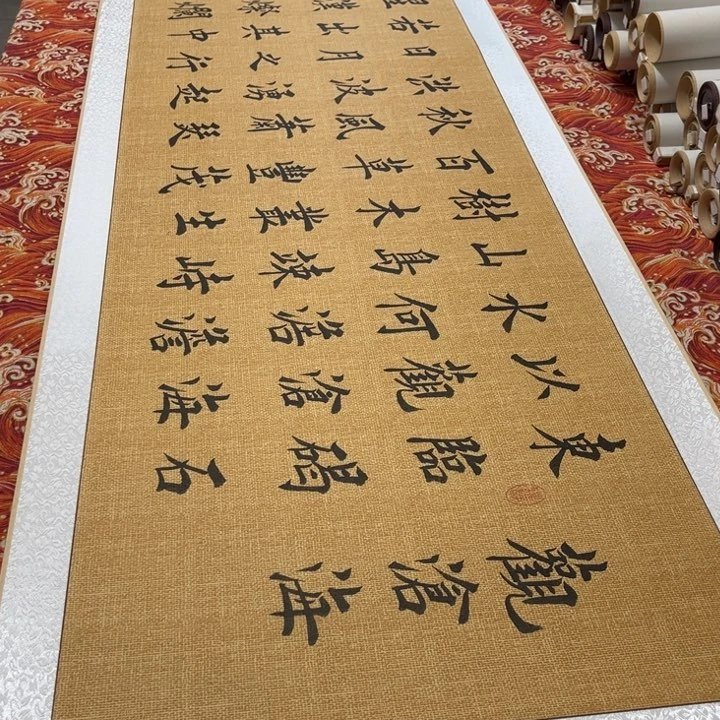 觀滄海
東臨碣石
以觀滄海
水何澹澹
山島竦峙
樹木叢生
百草豐茂
秋風蕭瑟
洪波湧起
日月之行
若出其中
星漢燦爛